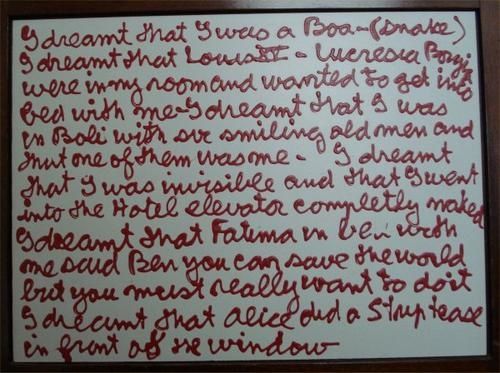 I dreamt that I was a Boa-(snake)
I dreamt that Louis XV - Lucresia Borgia
were in my room and wanted to get into
bed with me - I dreamt that I was
in Bali with six smiling old men and
that one of them was me - I dreamt
that I was invisible and that I went
into the Hotel elevator completly naked
I dreamt that Fatima in bed with
me said Ben you can save the world
but you must really want to do it
I dreamt that Alice did a Striptease
in front of the window